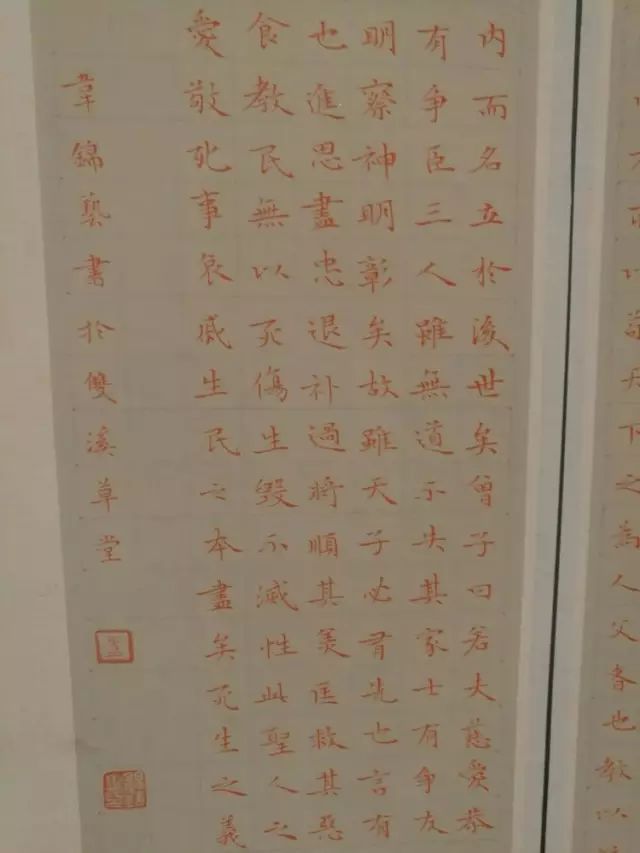 以敬天下之為人父者也教以
内而名立於後世矣曾子曰若夫慈愛恭
有争臣三人雖無道不失其家士有争友
明察神明彰矣故雖天子必有先也言有
也進思盡忠退补過將順其美匡救其惡
食教民無以死傷生毀不滅性此聖人之
愛敬死事哀戚生民之本盡矣死生之義
韋錦藝書於雙溪草堂